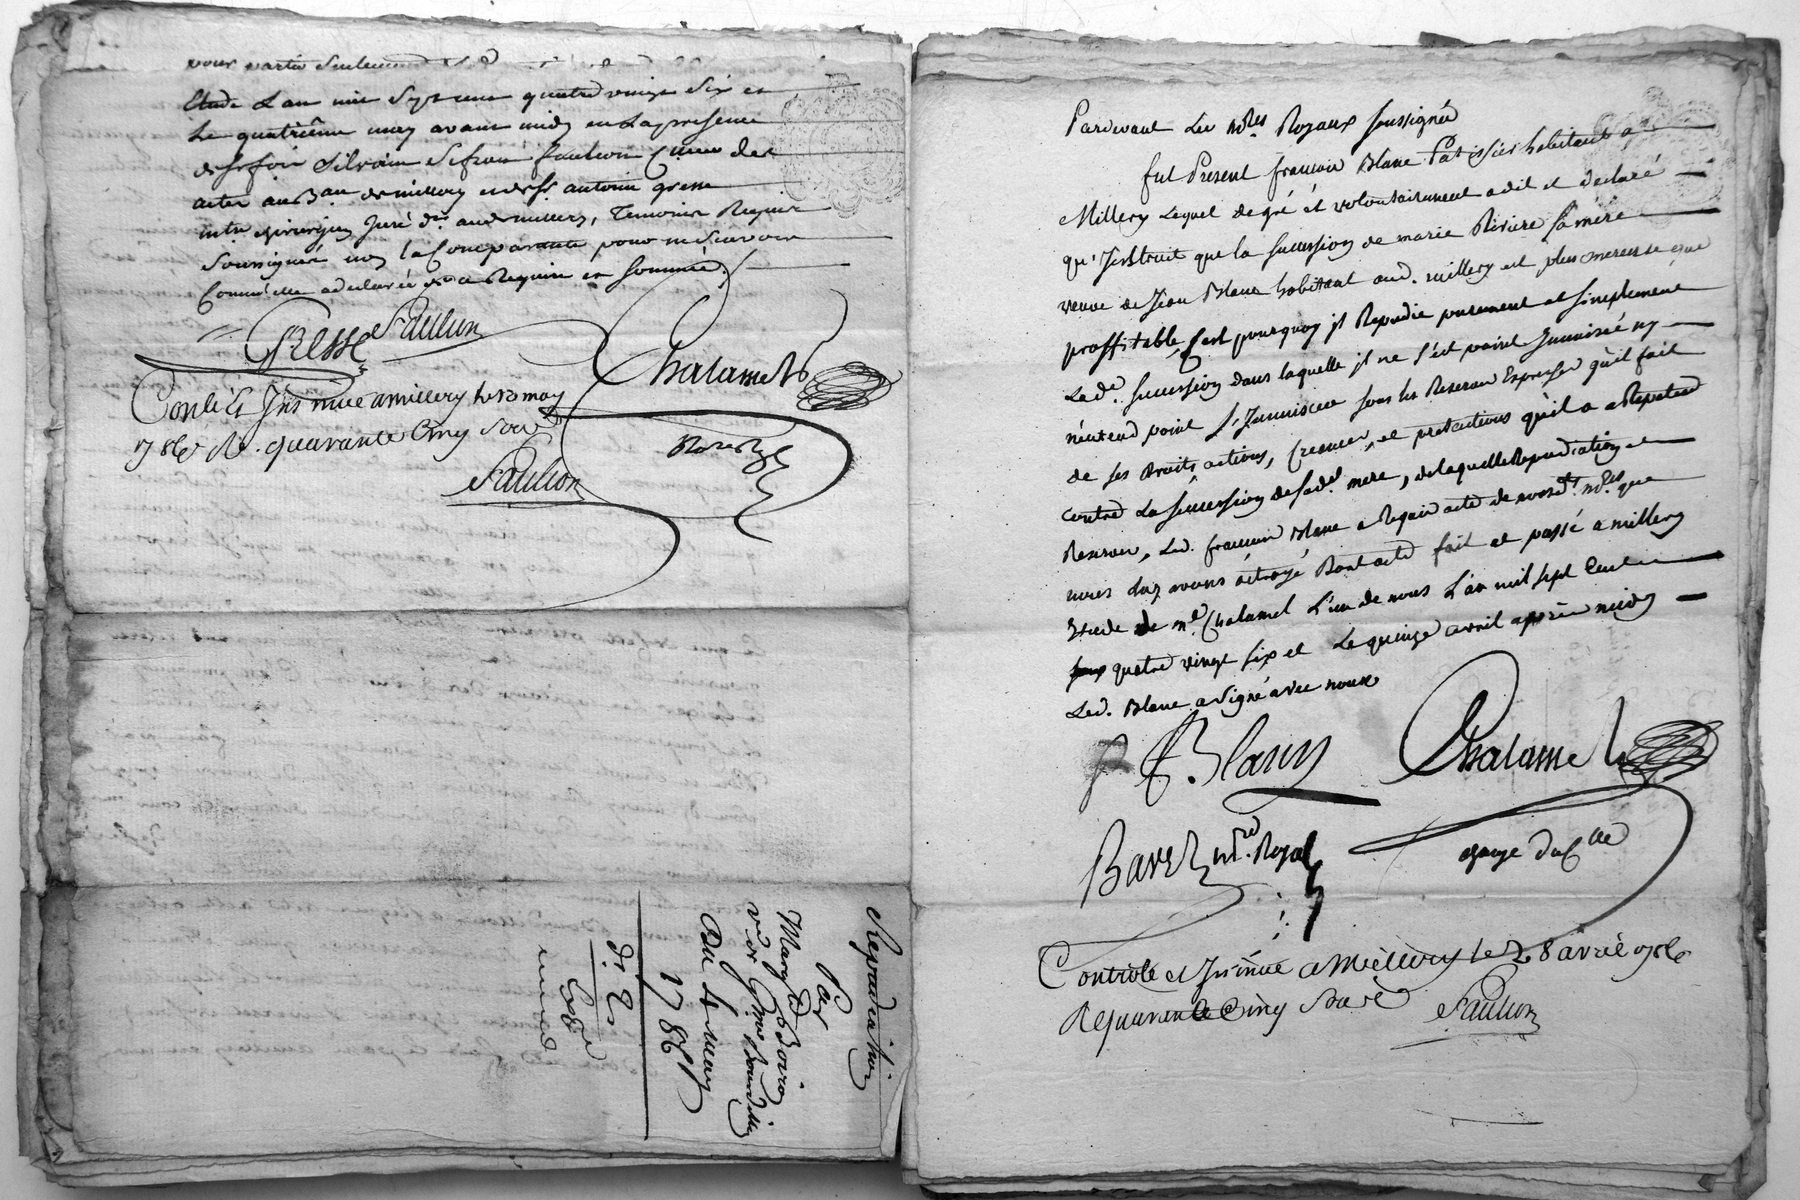 pour partie seulement
Etude L'an mil sept cent quatre vingt six et
Le quatriême may avant midy en La presence
de Sr foix Silvain Saulion Cmis des
actes aud. de millery et de Sr antoine gresse
mtre chirurgien Juré dt. aud millery, Temoins Requis
Soussignés non la Comparante pour ne Scavoir
Comme elle a declaré de ce Requise et Sommée./.
Gresse Saulion
Chalamel
Conlé & Insinué a millery le 10 may
1786 Re. quarante Cinq Sous
Saulion
Repudiation
Par
Marg.te
ve de
Du 4 may
1786
Pardevant Les nres Royaux soussignés
fut Present francois Blanc Patissier habitant a
Millery Lequel de gré et volontairement a dit et declaré
qu'Instruit que la succession de marie Riviere sa mere
veuve de Jean Blanc habitant aud. millery est plus onereuse que
proffitable, C'est pourquoy il Repudie purement et simplement
Lade. succession dans laquelle il ne s'est point Immiscé ny
n'entend point s'Immiscer sous les Reserves Expresses qu'il fait
de ses droits, actions, creances, et pretentions qu'il a a Repeter
contre La succession de sade. mere, de laquelle Repudiation et
Reserves, Led. francois Blanc a Requis acte de nousdts. nres. que
nous Luy avons octroyé Dont acte fait et passé a millery
Etude de me. Chalamel L'un de nous L'an mil sept Cent
quatre vingt six et Le quinze avril après midy
Led. Blanc a signé avec nous
F Blanc
Chalamel
Baret nre. Royal
Controlé et Insinué a Millery le 28 avril 1786
R quarante Cinq Sous
Saulion